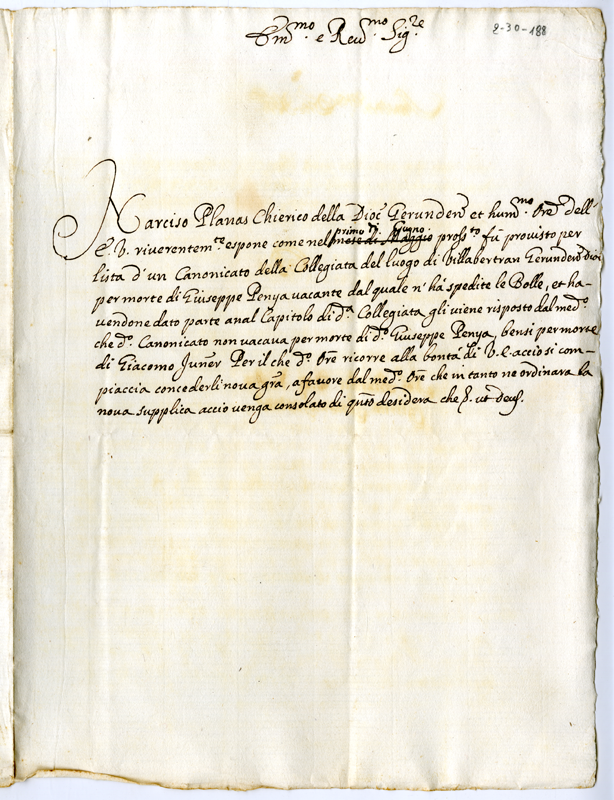 2-30-188
Em.mo e Reu.mo Sig.re
Narciso Planas Chierico della Dioc Gerunden et hum.mo Ore dell'
E. V. riverentem.te espone come nel primo di Giugno mese di Maggio pross.to fù provisto per
lista d'un Canonicato della Collegiata del luogo di Villabertran Gerunden dioc
per morte di Giuseppe Penya vacante dal quale n'hà spedite le Bolle, et ha-
vendone dato parte anal Capitolo di d.a Collegiata gli viene risposto dal med.o
che d.o Canonicato non vacava per morte di d.o Giuseppe Penya, bensi per morte
di Giacomo Juner Per il che d.o Ore ricorre alla bontà di V. E. accio si com-
piaccia concederli nova gra, a favore dal med.o Ore che in tanto ne ordinara la
nova supplica accio venga consolato di qnto desidera che ut Deus.